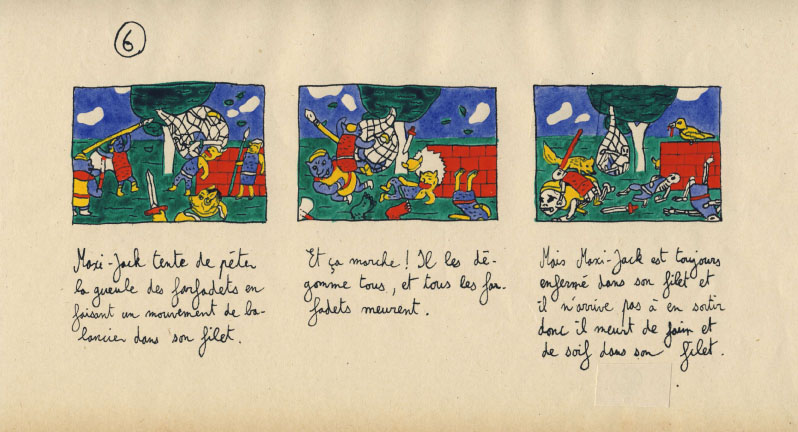 6
Maxi-Jack tente de péter
la gueule des farfadets en
faisant un mouvement de ba-
lancier dans son filet.
Et ça marche ! Il les dé-
gomme tous, et tous les far-
fadets meurent.
Mais Maxi-Jack est toujours
enfermé dans son filet et
il n'arrive pas à en sortir
donc il meurt de faim et
de soif dans son filet.